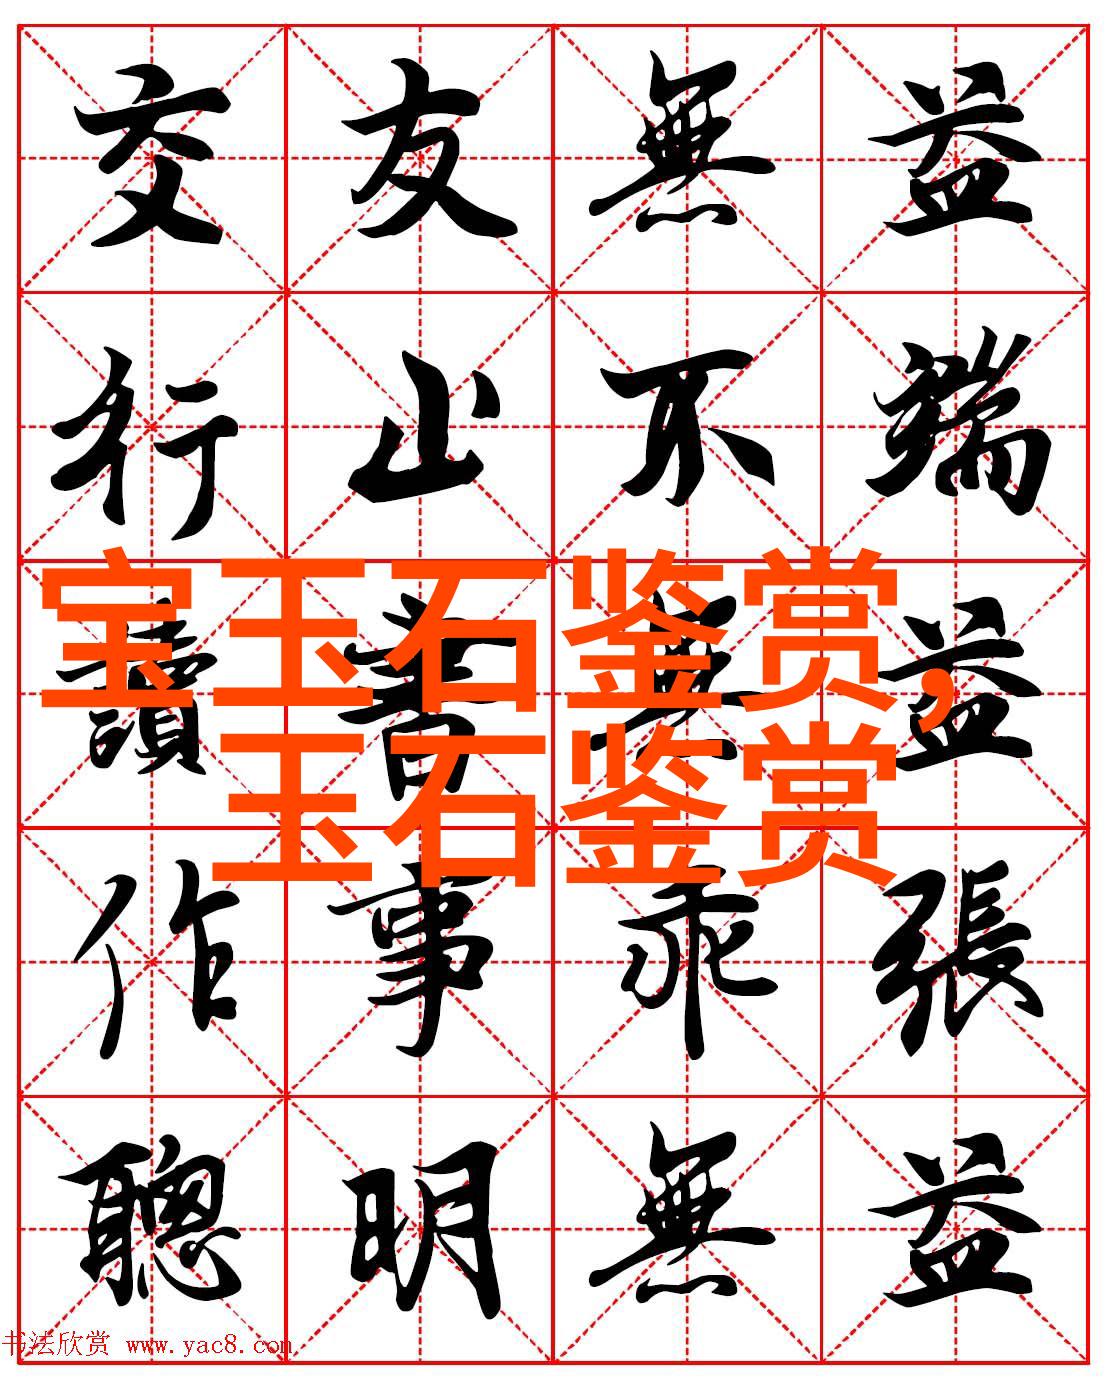 交友無益
行止不端
宝玉石鉴赏,
讀書無益
玉石鉴赏
作事乖張
聰明無益
书法欣赏 www.yac8.com